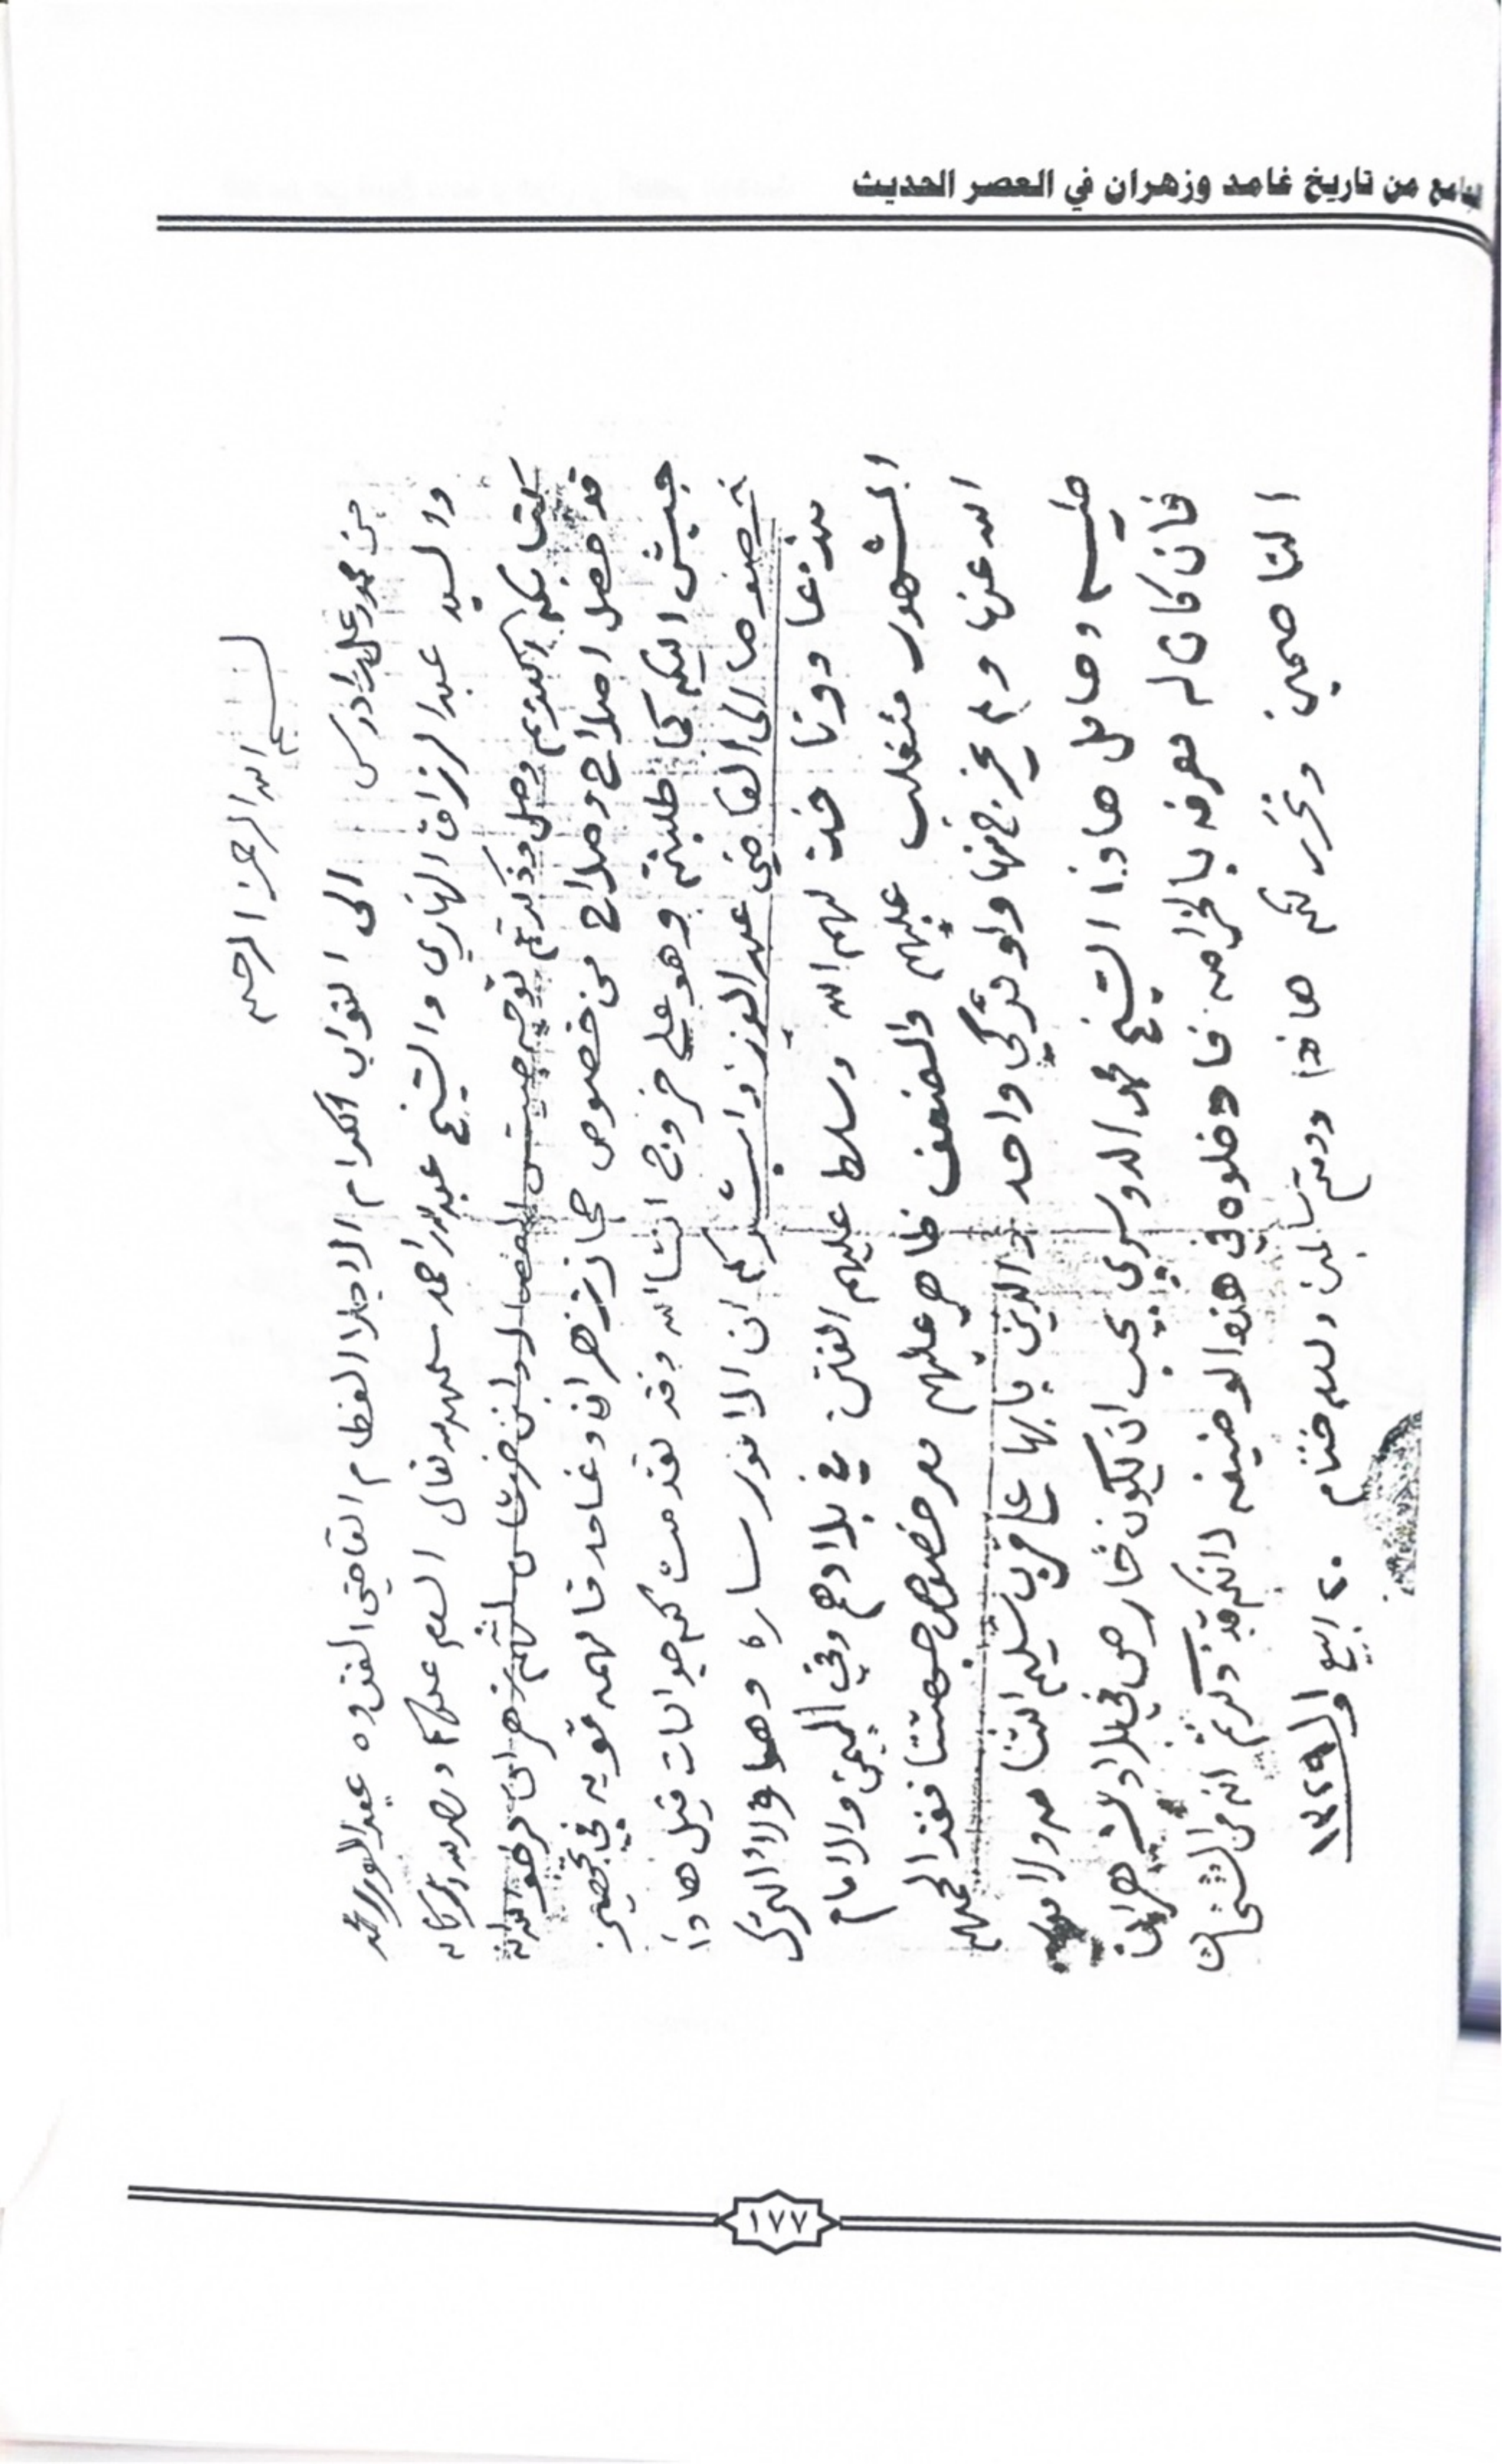 من تاريخ غامد وزهران في العصر الحديث
بسم الله الرحمن الرحيم
من محمد علي ادريس الى النواب الكرام الاجلا العظام القاضي القدوه عبد العزيز محمد
والسيد عبد الرزاق النهاري والشيخ عبد الله احمد سلمهم الله تعالى السلام عليكم ورحمة الله وبركاته
كتابكم الكريم وصل وذكرتم توجه جيش زهران
قد حصل اصلاح وصلاح من خصوص حجاز زهران وغامد قائمه قويه في تجهيز
جيش اليكم كما طلبتم وهو على خروج انشا الله وقد تقدمت لكم جوابات قبل هاذا
خصوصا الى القاضي عبد العزيز وابشركم ان الامور ساره وهاؤلاء الترك
عليهم الله وسلط عليهم الفتن في بلادهم وفي اليمن والامام
المشهور متغلب عليهم والضعف ظاهر عليهم ومن خصوص جهتنا فقد الجهم
الله عنها ولم يخرج منها ولو تركي واحد والذين بابها على قرب تسليم انشا
طيب وحامل هاذا الشيخ محمد الدوسري يحب ان يكون خارص في بلاد زهران
فان كان له معرفه بالخرامه فادخلوه في هذه الوضيفه لانكم قد ذكرتم انه من
الناصحين ونحرر لكم هاذا ودمتم سالمين والسلام ختام ٢٠ ربيع اول ١٣٢٩
١٧٧